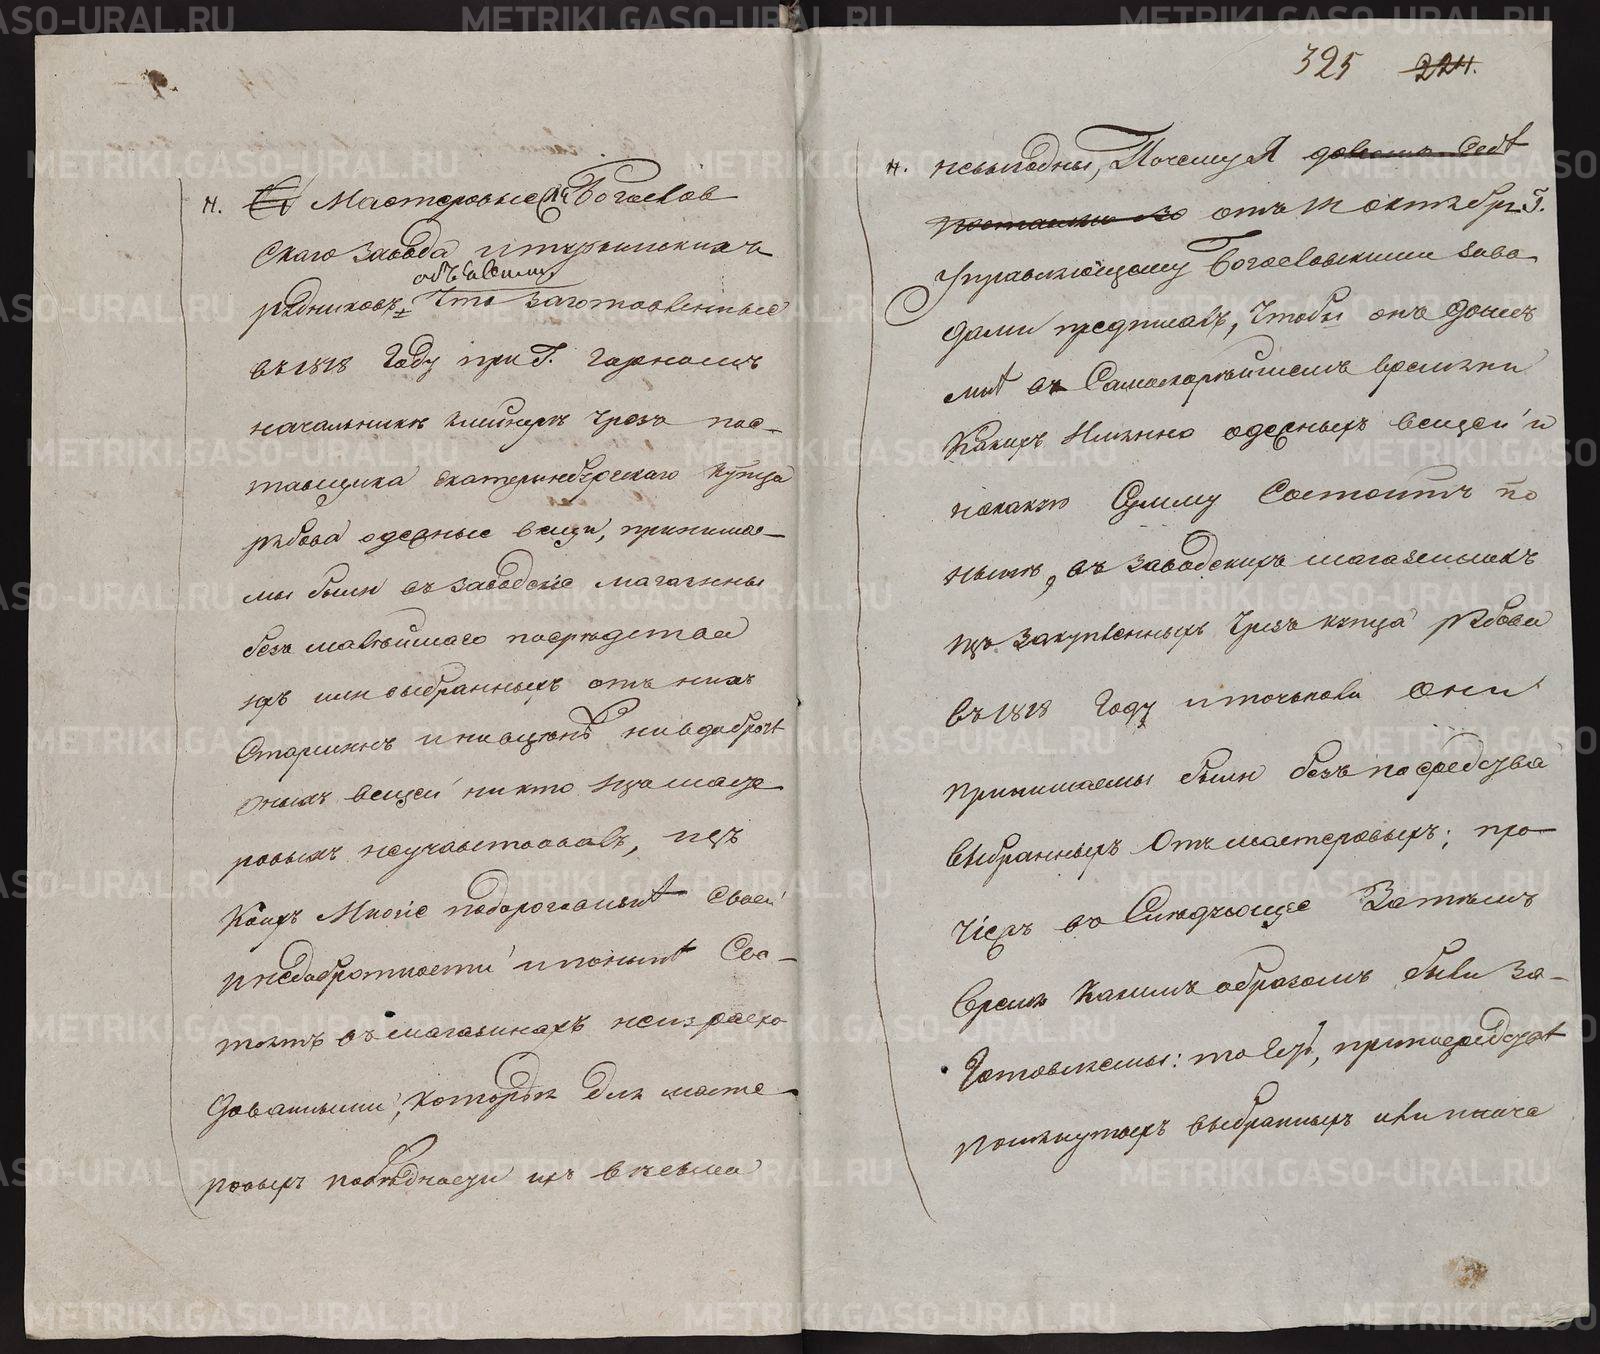 325 224.
н. Мастеровые Богослов
скаго завода и турьинскихъ
объявили
рудниковъ что заготовленные
въ 1818 году при Г. Горномъ
начальнике чрезъ пос-
тавщика екатеринбургскаго купца
рябова одежные вещи, принима-
мы были въ заводскіе магазины
безъ малейшаго посредства
ихъ или выбранныхъ отъ нихъ
старшинъ и ни въ ценѣ ни въ доброте
оныхъ вещей никто изъ масте
ровыхъ неучаствовалъ, изъ
коихъ многіе по дороговизне своей
и недобротности и поныне сос-
тоятъ въ магазинахъ неизрасхо
дованными, которыя для масте-
ровыхъ по бедности ихъ весьма
н. невыгодны, Почему Я
отъ 14 октября Г.
Управляющему Богословскими заво
дами предписалъ, чтобы онъ донес
мне въ Самоскорейшемъ времени
Какихъ Именно одежныхъ вещей и
на какую Сумму Состоитъ по
ныне, въ заводскихъ магазейнахъ
изъ закупленныхъ чрезъ купца рябова
въ 1818 году и точноли они
принимаемы были безъ посредства
выбранныхъ Отъ мастеровыхъ; про-
чіежъ въ Следующее Затемъ
время Какимъ образомъ были за-
готовляемы: то есть, при посредстве
помянутыхъ выбранныхъ или иначе